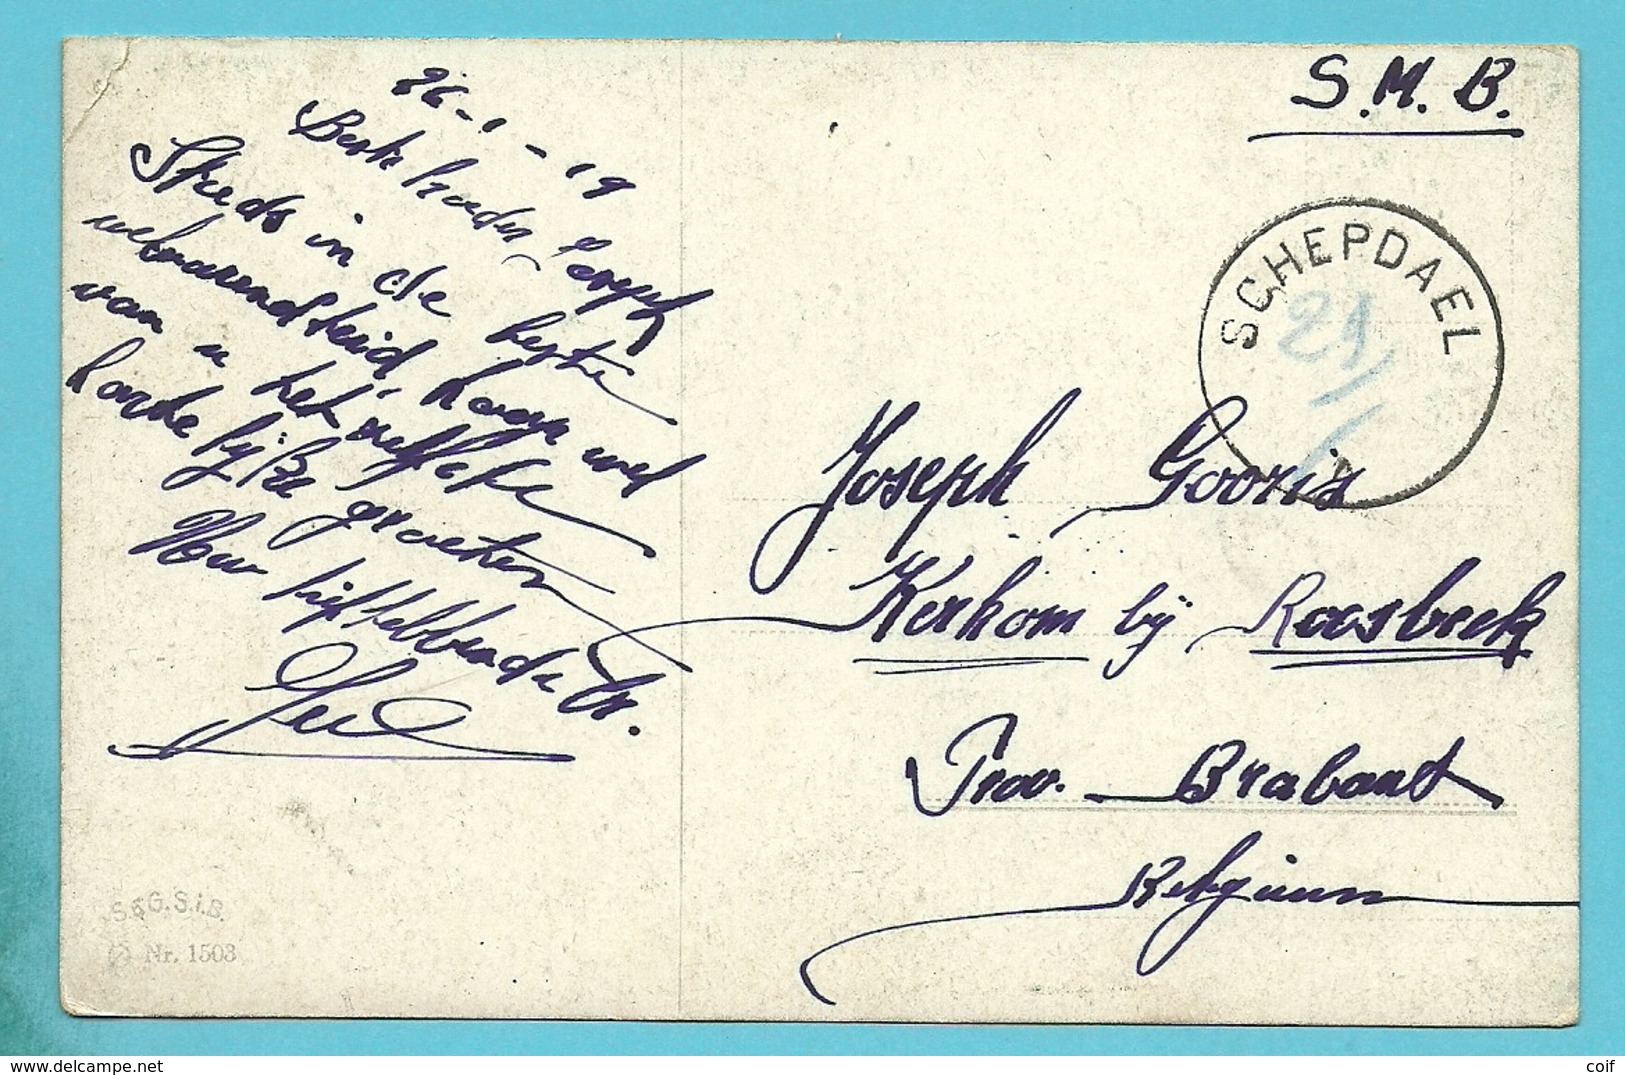 26-1-19
Beste broeder Joseph
Steeds in de beste
welvarendheid, hoop wel
van u het zelfde
hartelijke groeten
Uw liefhebbende br.
S.M.B.
SCHEPDAEL
21/1
Joseph Gooris
Kerkom bij Roosbeek
Prov. Brabant
Belgium
S&G.S.i.B.
Nr. 1503
coif